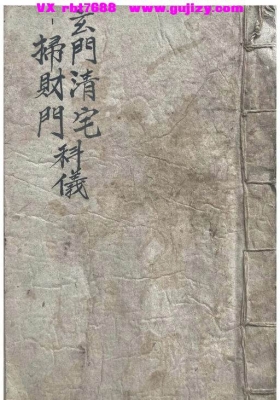 VX rbt7688 www.gujizy.com
玄門清宅
掃財門科儀